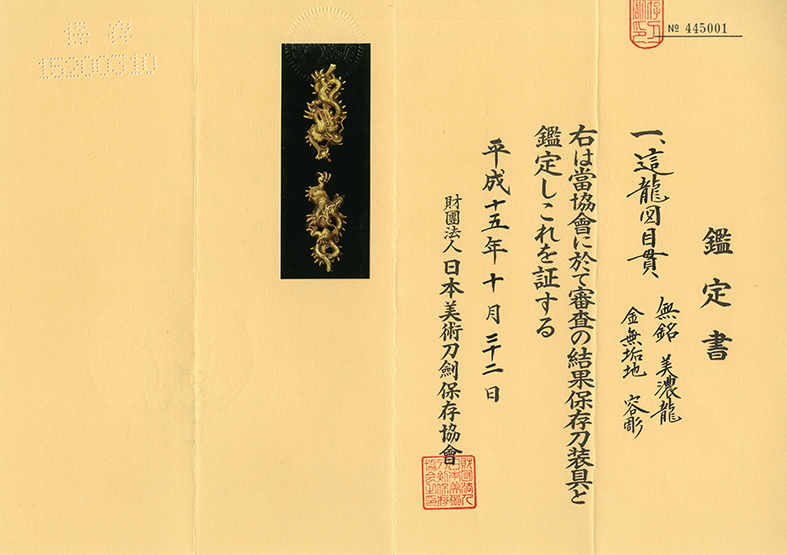 № 445001
鑑定書
一、這龍図目貫
無銘 美濃龍
金無垢地 容彫
右は當協會に於て審査の結果保存刀装具と
鑑定しこれを証する
平成十五年十月三十二日
財團法人 日本美術刀劍保存協會
保存
15200310